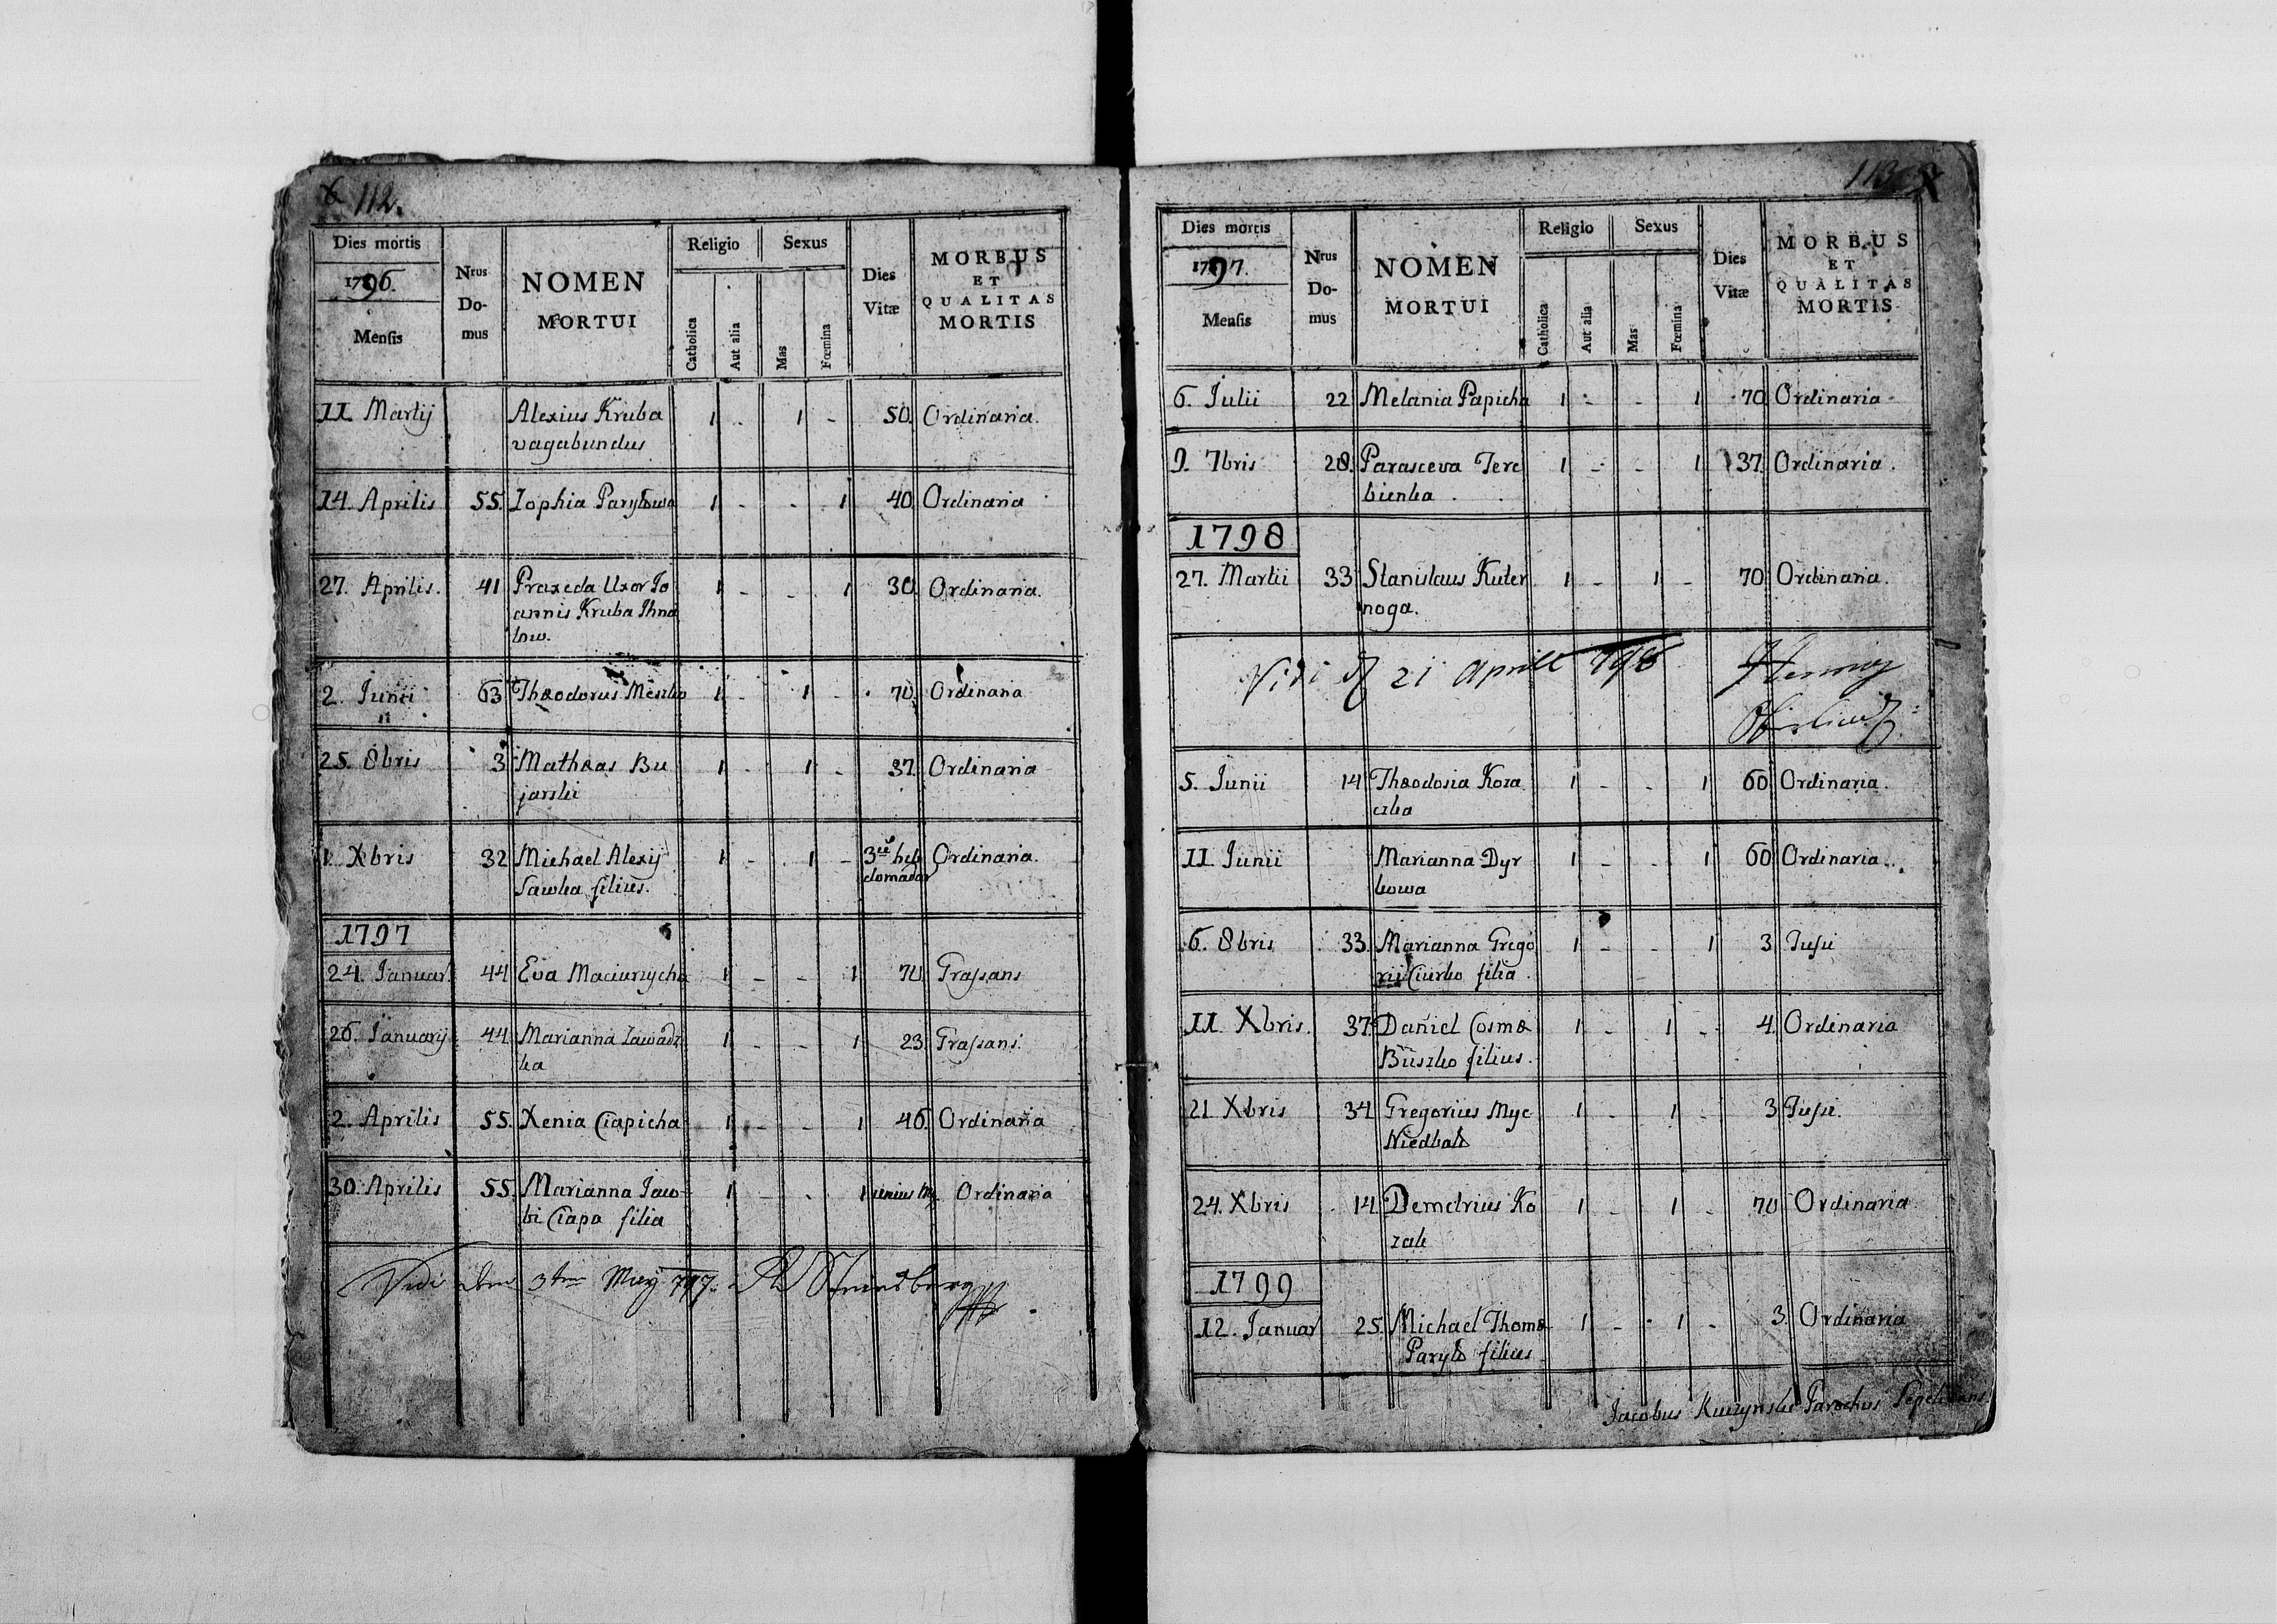 112.
Dies mortis
1796.
Mensis
Nrus Do-mus
NOMEN MORTUI
Religio
Catholica
Aut alia
Sexus
Mas
Fœmina
Dies Vitæ
MORBUS ET QUALITAS MORTIS
11 Martij Alexius Kruba 1 - 1 - 50. Ordinaria.
vagabundus
14. Aprilis 55. Zophia Paryłowa 1 - - 1 40. Ordinaria
27. Aprilis. 41 Praxeda Uxor Jo 1 - - 1 30. Ordinaria.
annis Kruba Ihna
tow.
2. Junii 63 Theodorus Meszko 1 - 1 - 70. Ordinaria
25. 8bris 3 Mathæas Bu 1 - 1 - 37. Ordinaria
jarski
1. Xbris 32 Michael Alexij 1 - 1 - 3 heb Ordinaria.
Sawka filius. domadar
1797
24. Januar. 44 Eva Maciurzycha 1 - - 1 70. Graſsans
26. Januarij 44. Marianna Zawadz 1 - - 1 23. Graſsans.
ka
2. Aprilis 55. Xenia Ciapicha 1 - - 1 46. Ordinaria
30. Aprilis 55. Marianna Jaco 1 - - 1 unius M. Ordinaria
bi Ciapa filia
Vidi den 3ten May 797.
113
Dies mortis
1797.
Mensis
Nrus Do-mus
NOMEN MORTUI
Religio
Catholica
Aut alia
Sexus
Mas
Fœmina
Dies Vitæ
MORBUS ET QUALITAS MORTIS
6. Julii 22 Melania Papicha 1 - - 1 70 Ordinaria
9. 7bris 28. Parasceva Tere 1 - - 1 37. Ordinaria.
bienka.
1798
27. Martii 33 Stanislaus Kuter 1 - 1 - 70 Ordinaria.
noga.
Vidi 21 Aprill 798
5. Junii 14 Theodosia Koza 1 - - 1 60 Ordinaria.
czka
11. Junii Marianna Dyr 1 - - 1 60 Ordinaria.
kowa
6. 8bris 33. Marianna Grego 1 - - 1 3 Tuſsi
rii Ciurko filia.
11 Xbris. 37. Daniel Cosmæ 1 - 1 - 4. Ordinaria
Buszko filius.
21 Xbris 34 Gregorius Myc 1 - 1 - 3 Tuſsi.
Niedbał
24. Xbris 14. Demetrius Ko 1 - 1 - 70 Ordinaria
zak
1799
12. Januar 25. Michael Thomæ 1 - 1 - 3. Ordinaria
Paryło filius
Jacobus Kuczynski Parochus Sepeliens